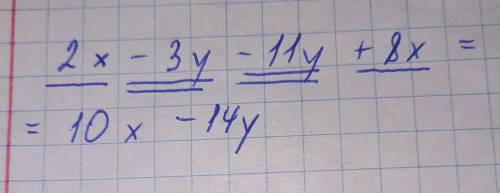 2x - 3y - 11y + 8x =
= 10x - 14y